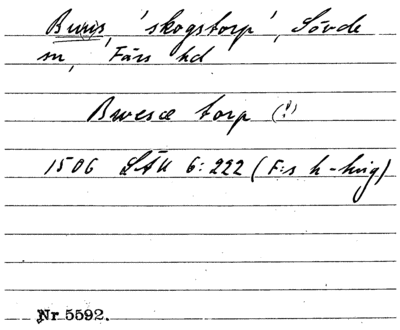 Buris, 'skogstorp', Sövde
sn, Färs hd
Buresæ torp (!)
1506 LÄU 6:222 (F:s h-hvig)
Nr 5592.